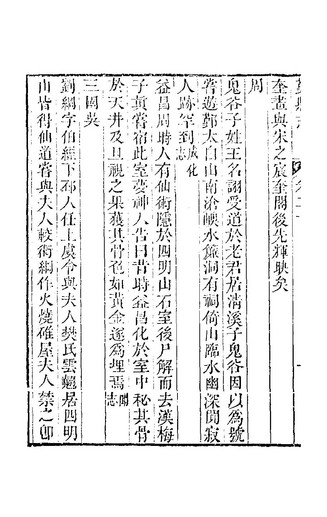 奎畫與宋之宸奎閣後先輝映矣
周
鬼谷子姓王名詡受道於老君居清溪子鬼谷因以為號
嘗遊鄞太白山南滄峽水簾洞有祠倚山臨水幽深闃寂
人跡罕到成化志
益昌周時人有仙術隱於四明山石室後尸解而去漢梅
子真嘗宿此室夢神人告曰昔時益昌化於室中秘其骨
於天井及旦視之果獲其骨色如黃金遂為埋焉聞志
三國吳
劉綱字伯經下邳人任上虞令與夫人樊氏雲翹居四明
山皆得仙道嘗與夫人較術綱作火燒碓屋夫人禁之卽